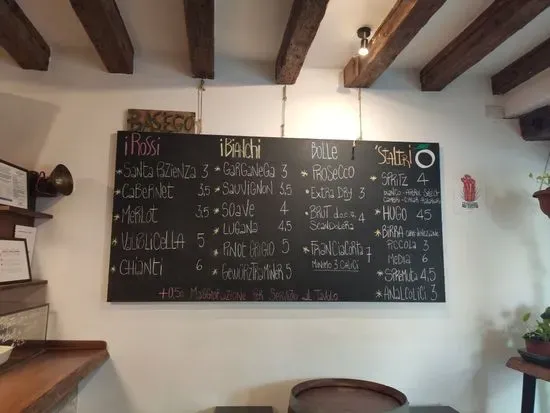 BASEGÒ
i Rossi
* Santa Pazienza 3
* Cabernet 3,5
* Merlot 3,5
* Valpolicella 5
* Chianti 6
i Bianchi
* Garganega 3
* Sauvignon 3,5
* Soave 4
* Lugana 4,5
* Pinot Grigio 5
* Gewürztraminer 5
Bolle
* Prosecco
* Extra Dry 3
* Brut 4
* Franciacorta 7
Minimo 3 Calici
* Spritz 4
* Hugo 4,5
* Birra
Piccola 3
Media 6
* Spremuta 4,5
* Analcolici 3
+0,5 Maggiorazione per Servizio al Tavolo